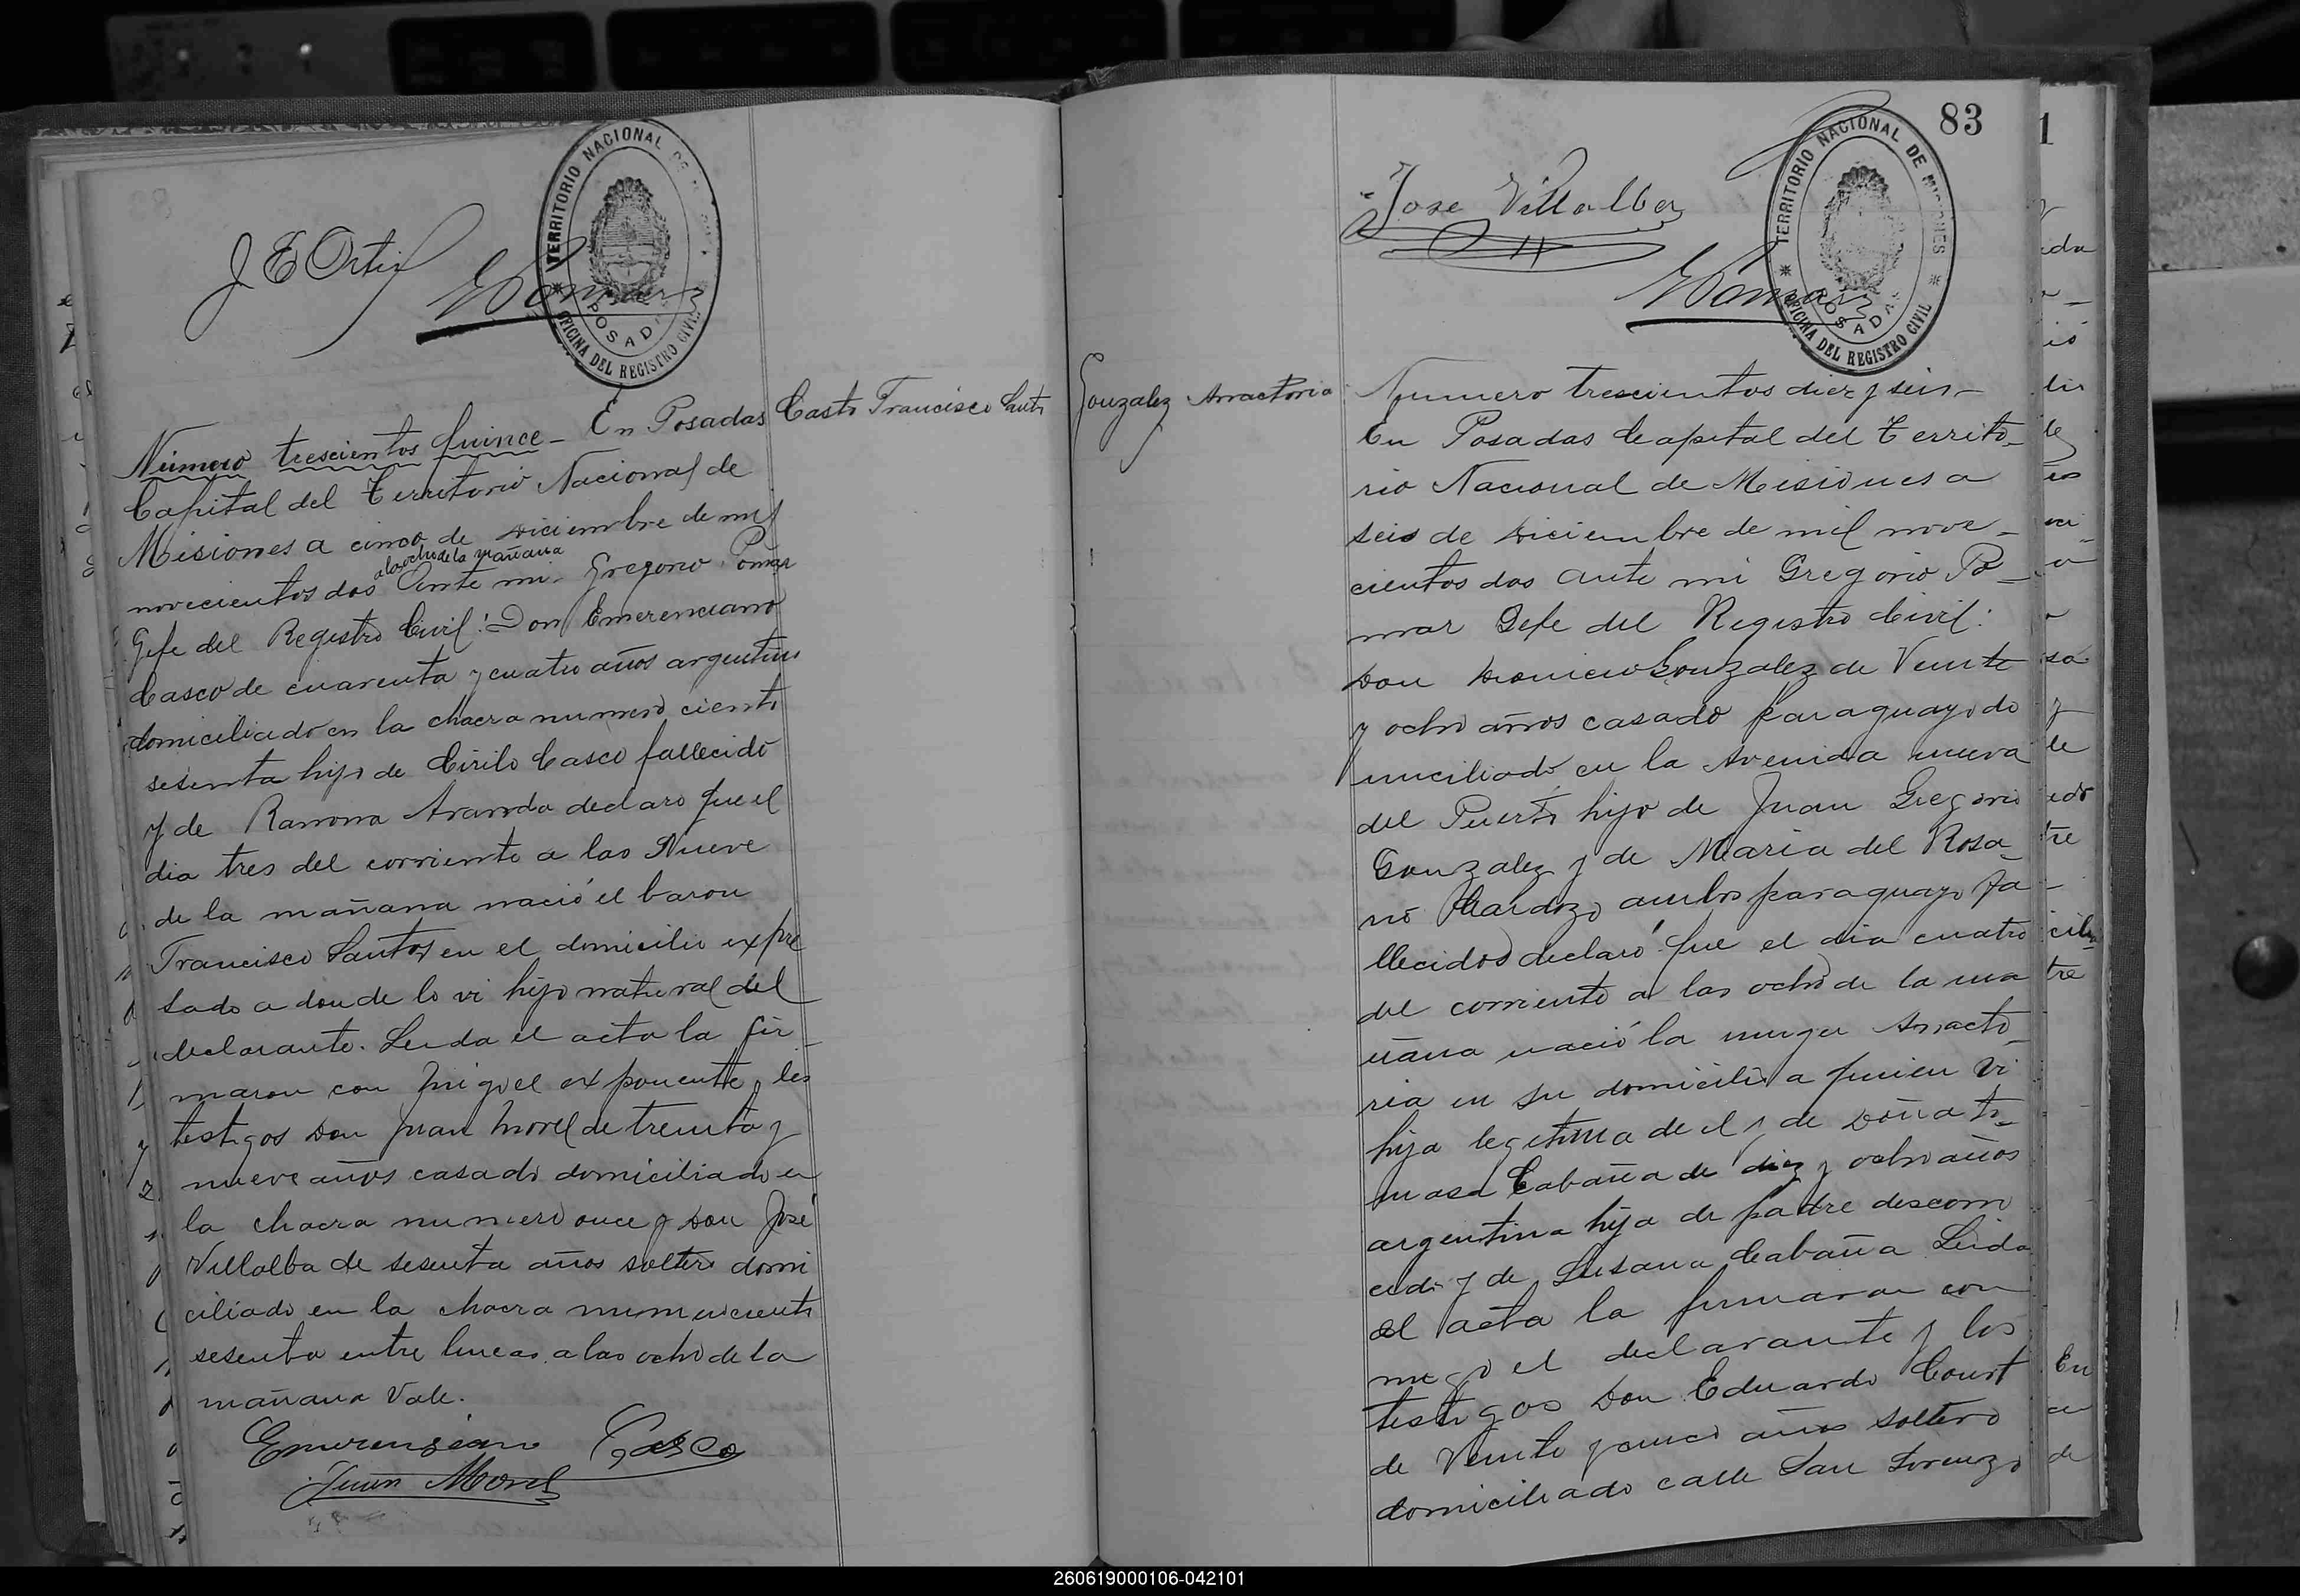 J E Ortiz
TERRITORIO NACIONAL DE
OFICINA DEL REGISTRO CIVIL
POSADAS
Número trescientos quince_ En Posadas
Casco Francisco Santos
Capital del Territorio Nacional de
Misiones a cinco de Diciembre de mil
a las ocho de la mañana
novecientos dos Ante mi Gregorio Pomar
Gefe del Registro Civil: Don Emerenciano
Casco de cuarenta y cuatro años argentino
domiciliado en la chacra numero ciento
sesenta hijo de Cirilo Casco fallecido
y de Ramona Aranda declaro que el
dia tres del corriente a las Nueve
de la mañana nació el baron
Francisco Santos en el domicilio expre
sado a donde lo vi hijo natural del
declarante. Leida el acta la fir_
maron con migo el exponente y los
testigos Don Juan Morel de treinta y
nueve años casado domiciliado en
la chacra numero once y Don José
Villalba de sesenta años soltero domi
ciliado en la chacra numero ciento
sesenta entre lineas a las ocho de la
mañana Vale.
Emerensiano Casco
Juan Morel
83
Jose Villalba
Pomar
TERRITORIO NACIONAL DE MISIONES
OFICINA DEL REGISTRO CIVIL
POSADAS
Gonzalez Anactoria
Numero trescientos diez y seis_
En Posadas Capital del Territo_
rio Nacional de Misiones a
seis de Diciembre de mil nove_
cientos dos ante mi Gregorio Po_
mar Gefe del Registro Civil:
Don Dionicio Gonzalez de Veinte
y ocho años casado paraguayo do
miciliado en la Avenida nueva
del Puerto hijo de Juan Gregorio
Gonzalez y de Maria del Rosa_
rio Cardozo ambos paraguayo fa_
llecidos declaró que el dia cuatro
del corriente a las ocho de la ma
ñana nació la muger Anacto_
ria en su domicilio a quien vi
hija legitima de el y de Doña To_
masa Cabaña de diez y ocho años
argentina hija de padre descono
cido y de Susana Cabaña Leida
el acta la firmaron con
migo el declarante y los
testigos Don Eduardo Court
de Veinte y cinco años soltero
domiciliado calle San Lorenzo
260619000106-042101